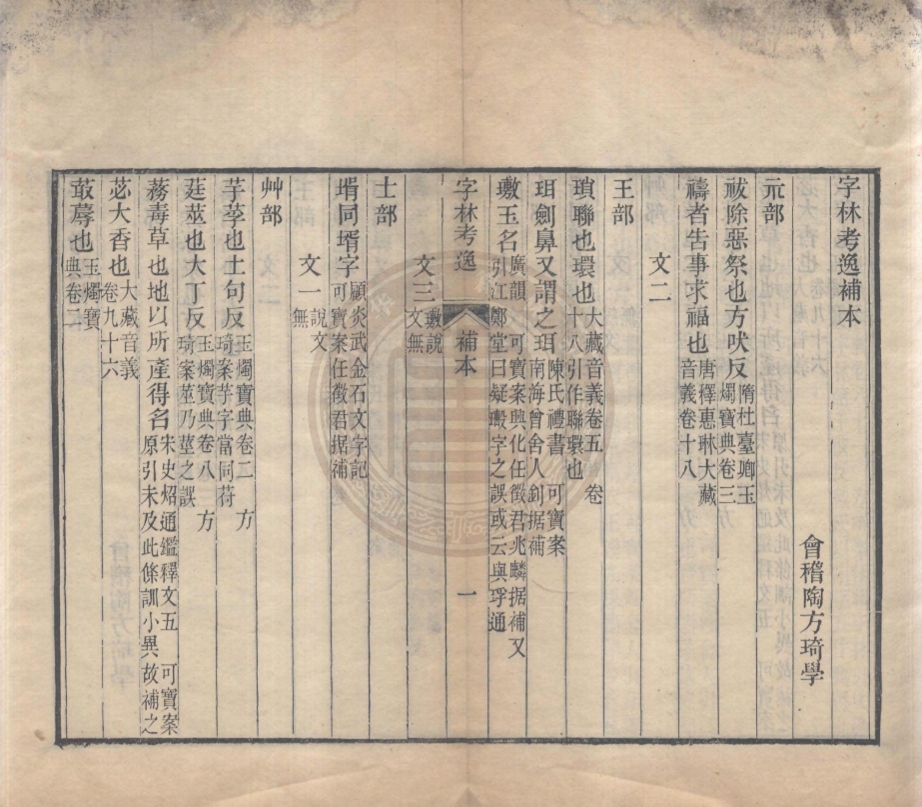 字林考逸補本
會稽陶方琦學
示部
祓除惡祭也方吠反隋杜臺卿玉燭寶典卷三
禱者吿事求福也唐釋惠琳大藏音義卷十八
文二
王部
瑣聯也環也大藏音義卷五 卷十八引作聯環也
珥劍鼻又謂之珥陳氏禮書 可寶案南海曾舍人釗据補
璷玉名廣韻 可寶案興化任徵君兆麟据補又引江鄭堂曰疑璥字之誤或云與琈通
字林考逸 補本 一
文三璷說文無
士部
壻同壻字顧炎武金石文字記可寶案任徵君据補
文一說文無
艸部
芓莩也土句反玉燭寶典卷二 方琦案芓字當同苻
莛莖也大丁反玉燭寶典卷八 方琦案莁乃莖之誤
蓩毒草也地以所產得名宋史炤通鑑釋文五 可寶案原引未及此條訓小異故補之
苾大香也大藏音義卷九十六
菆蓐也玉燭寶典卷二